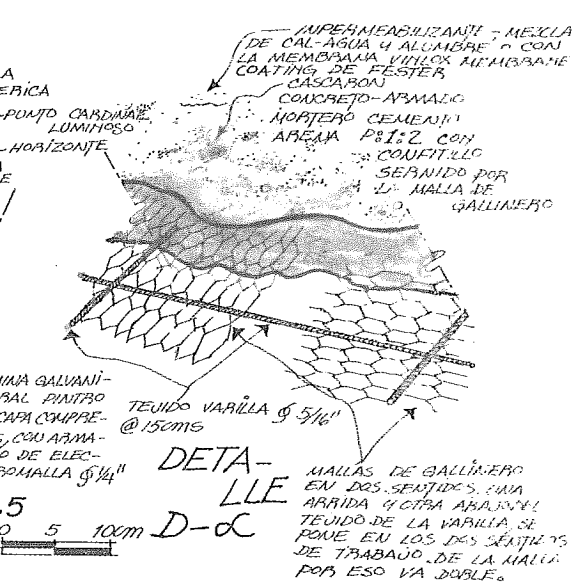 IMPERMEABILIZANTE - MEZCLA
DE CAL-AGUA Y ALUMBRE O CON
LA MEMBRANA VINLOX MEMBRANE
COATING DE FESTER
CASCARON
CONCRETO-ARMADO
MORTERO CEMENTO
ARENA P:1:2 CON
CONFITILLO
SERNIDO POR
LA MALLA DE
GALLINERO
A
ERICA
-PUNTO CARDINAL
LUMINOSO
-HORIZONTE
A
E
INA GALVANI-
RAL PINTRO
CAPA COMPRE-
, CON ARMA-
O DE ELEC-
ROMALLA ϕ1/4"
TEJIDO VARILLA ϕ 5/16"
@ 15CMS
DETA-
LLE
D-α
MALLAS DE GALLINERO
EN DOS SENTIDOS, UNA
ARRIDA Y OTRA ABAJO DEL
TEJIDO DE LA VARILLA, SE
PONE EN LOS DOS SENTIDOS
DE TRABAJO DE LA MALLA
POR ESO VA DOBLE.
.5
0 5 10cm